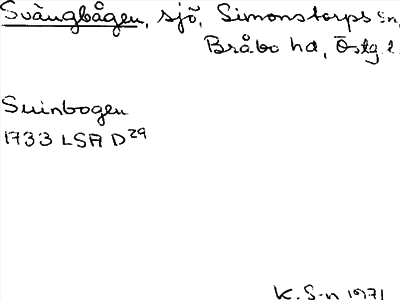 Svängbågen, sjö, Simonstorps sn,
Bråbo hd, Östg l.
Suinbogen
1733 LSA D29
K. S-n 1971